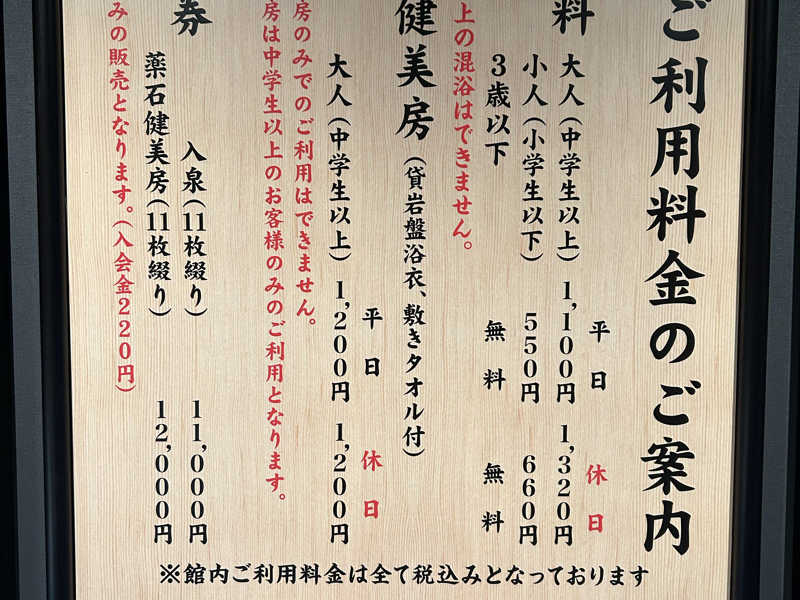 ご利用料金のご案内
料
平日 休日
大人(中学生以上) 1,100円 1,320円
小人(小学生以下) 550円 660円
3歳以下 無料 無料
上の混浴はできません。
健美房(貸岩盤浴衣、敷きタオル付)
平日 休日
大人(中学生以上) 1,200円 1,200円
房のみでのご利用はできません。
房は中学生以上のお客様のみのご利用となります。
券
入泉(11枚綴り) 11,000円
薬石健美房(11枚綴り) 12,000円
みの販売となります。(入会金220円)
※館内ご利用料金は全て税込みとなっております